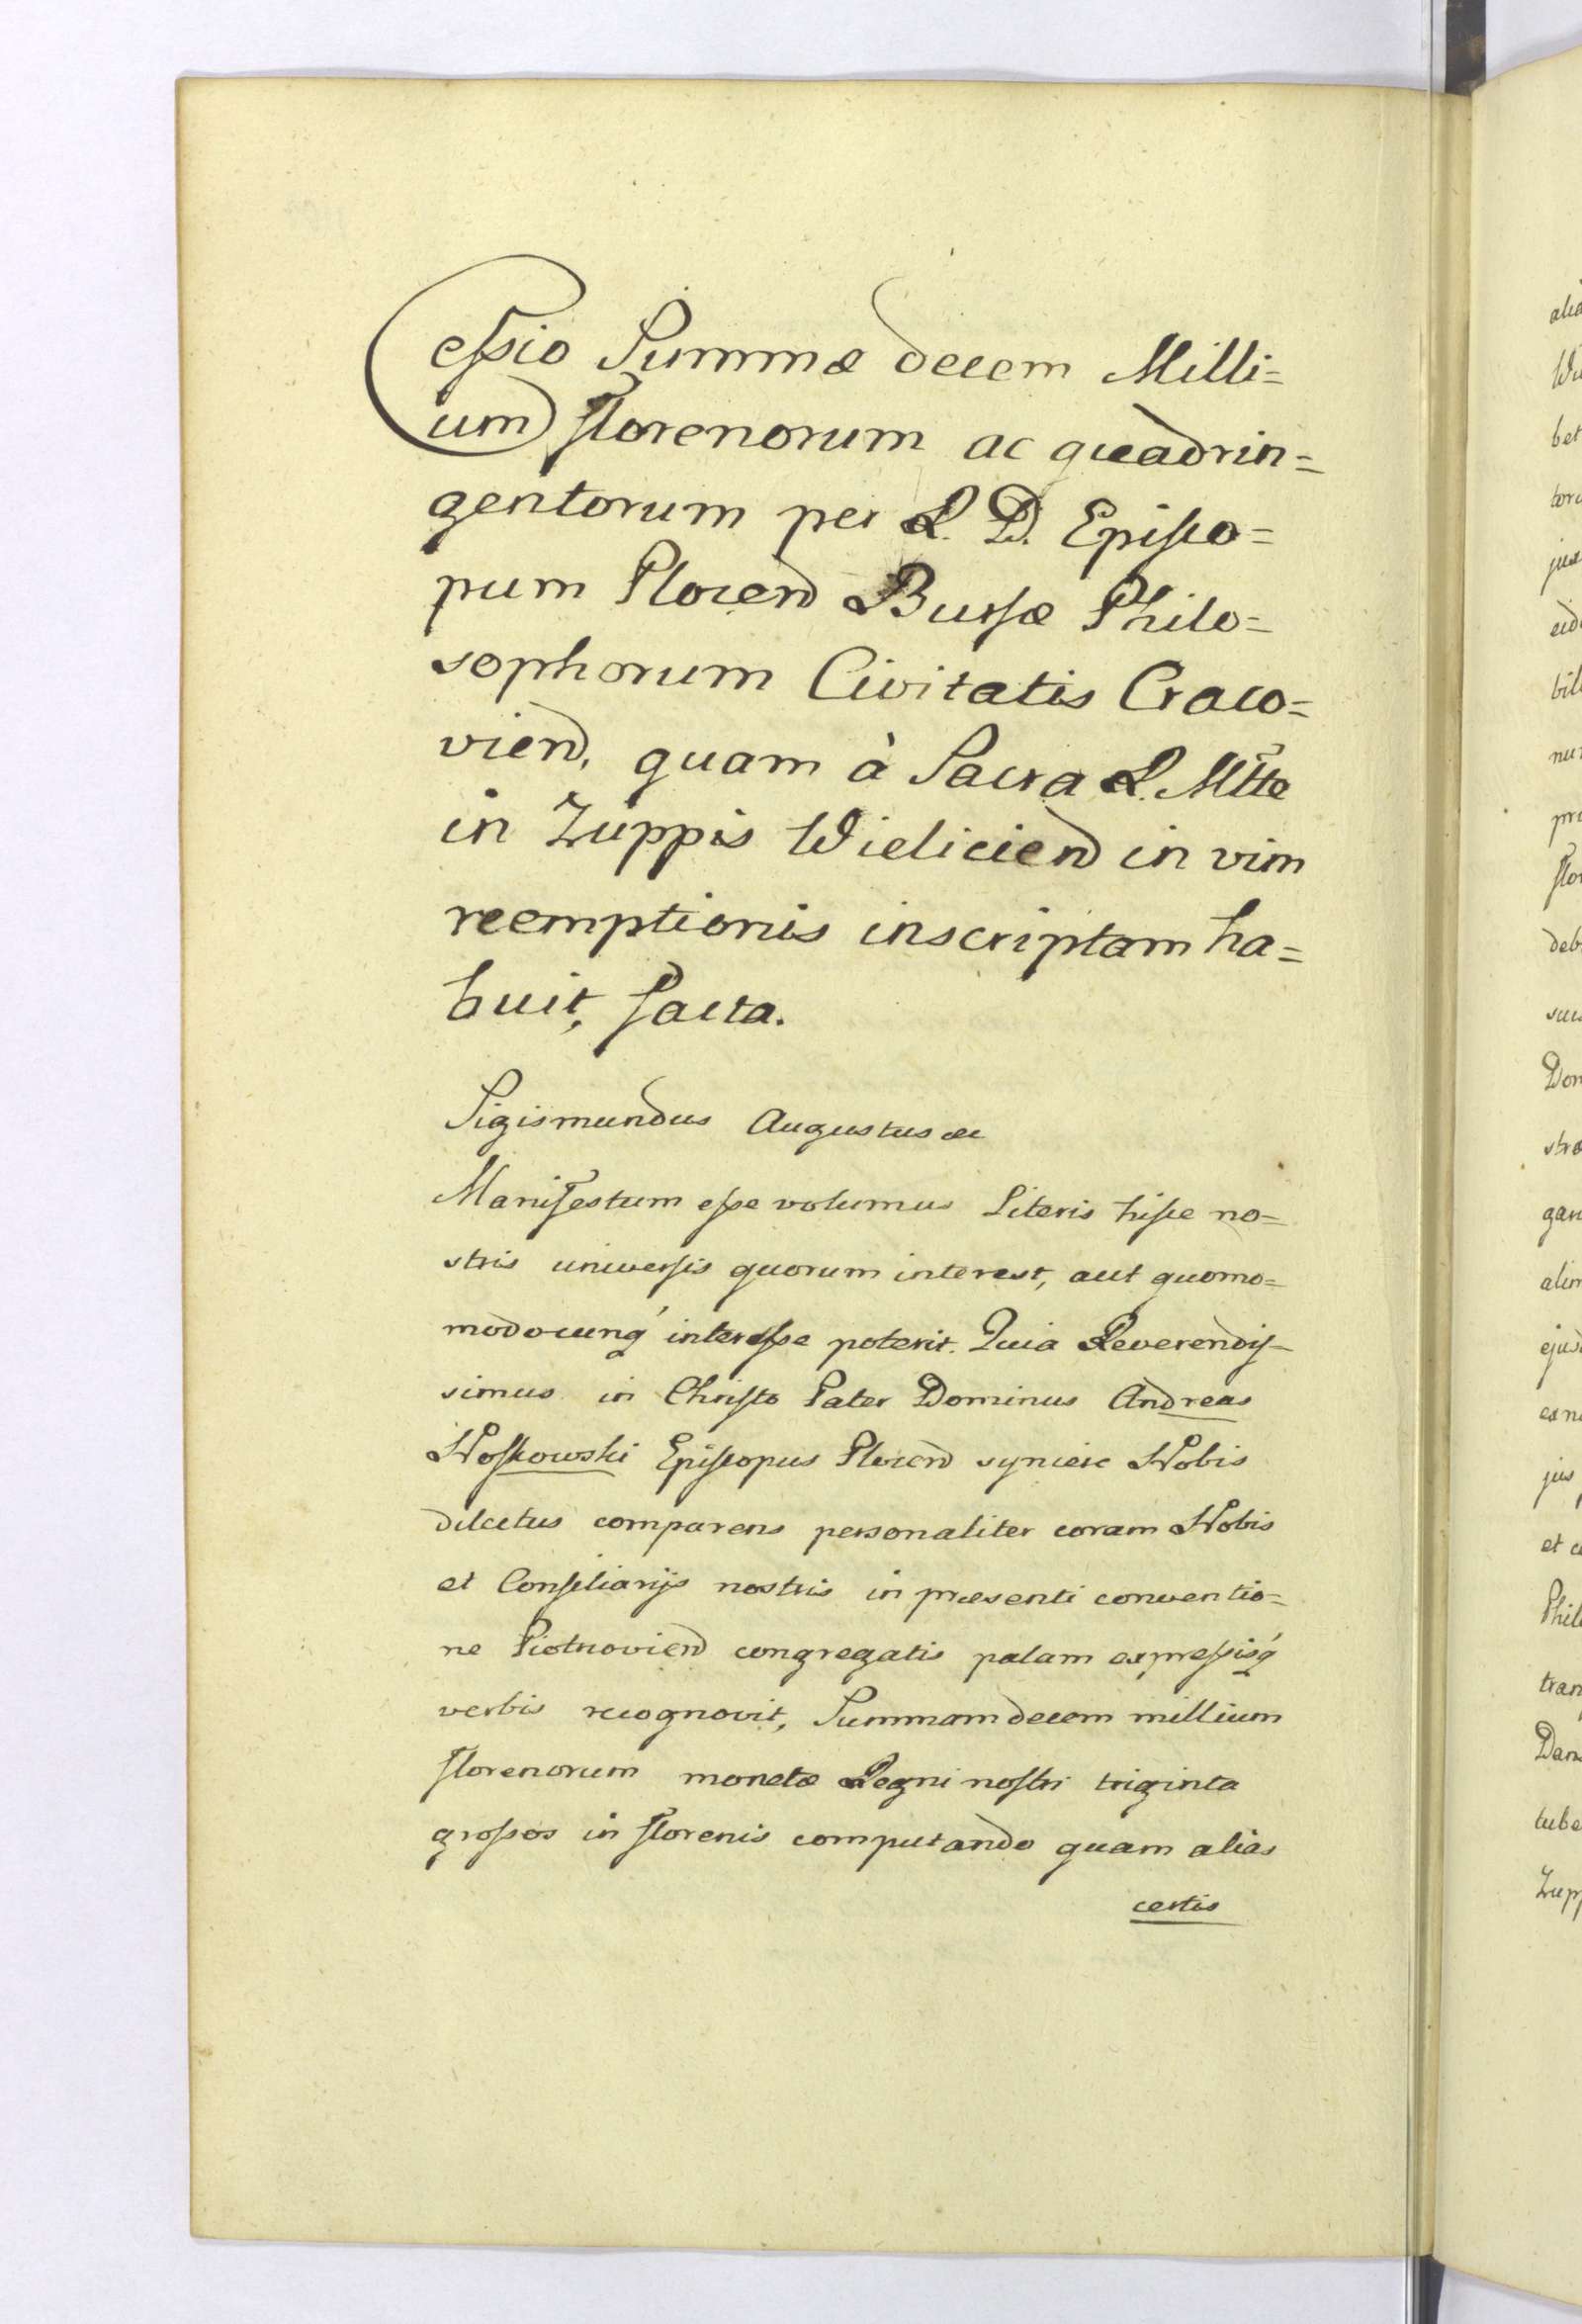 Cessio Summæ decem Milli=
um florenorum ac quadrin=
gentorum per R. D. Episco=
pum Plocen Bursæ Philo=
sophorum Civitatis Craco=
vien, quam à Sacra R. Mtte
in Zuppis Wielicien in vim
reemptionis inscriptam ha=
buit, facta.
Sigismundus Augustus etc
Manifestum esse volumus Literis hisce no=
stris universis quorum interest, aut quomo=
modocunq' interesse poterit. Quia Reverendis-
simus in Christo Pater Dominus Andreas
Noskowski Episcopus Plocen syncere Nobis
dilectus comparens personaliter coram Nobis
et Consiliarijs nostris in præsenti conventio=
ne Piotrcovien congregatis palam expressisq'
verbis recognovit, Summam decem millium
florenorum monetæ Regni nostri triginta
grossos in florenis computando quam alias
certis
alia
Wi
bet
toru
jus
eid
bil
nu
pro
flo
deb
suc
Dom
stræ
gan
alim
ejusd
ex n
jus
et c
Phil
tran
Dan
tube
Zupp